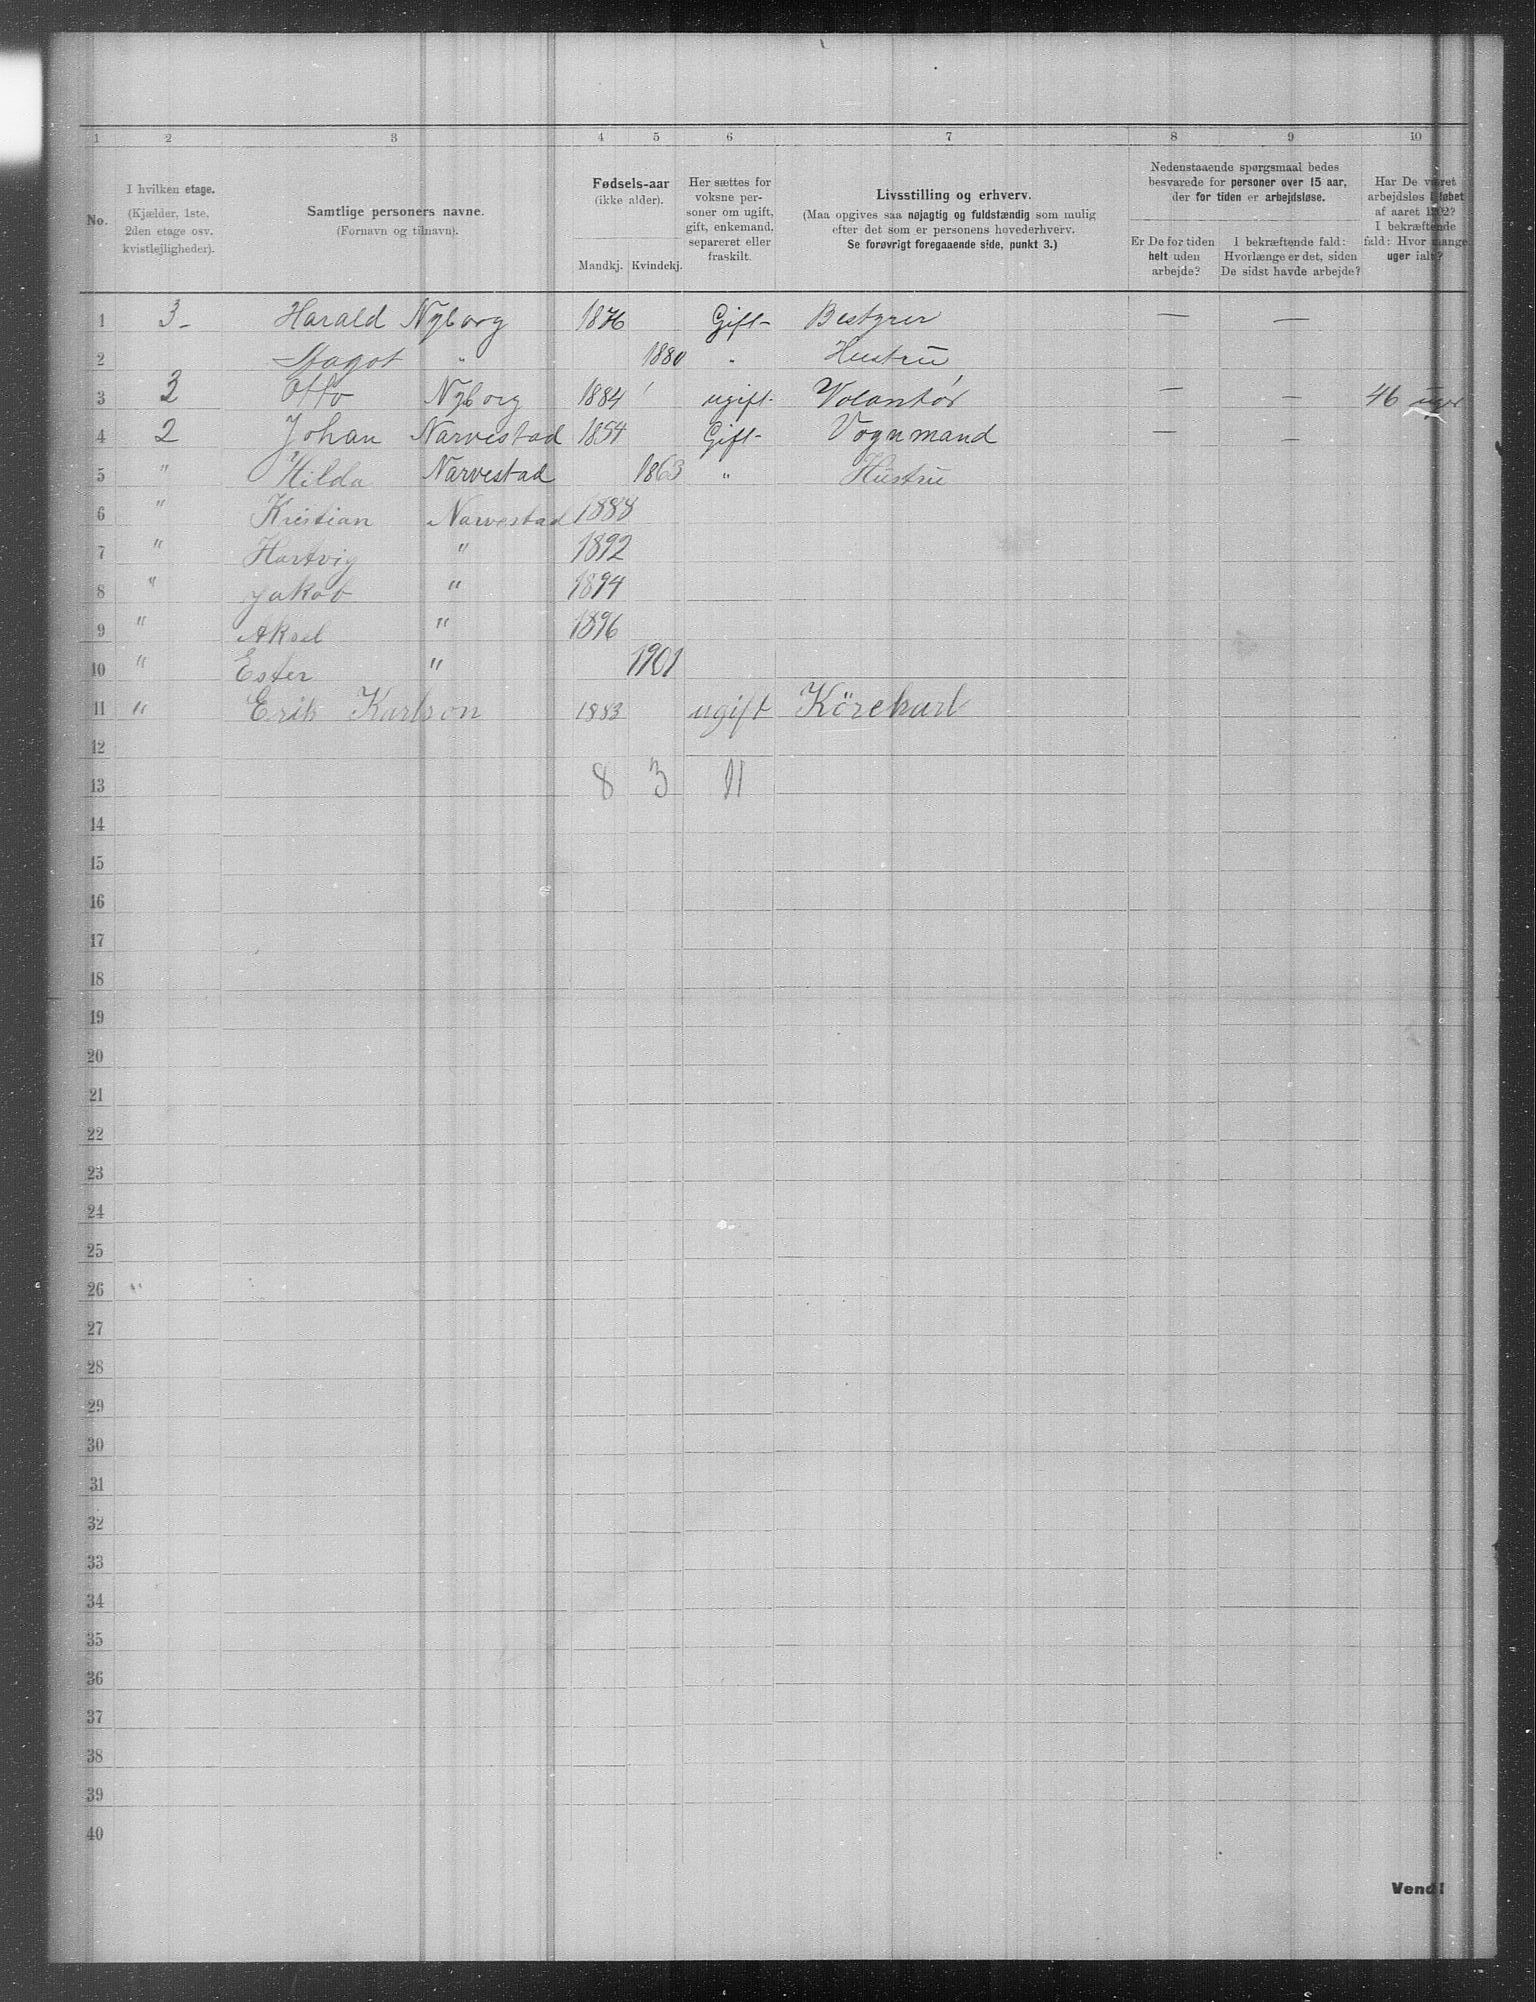 1 2 3 4 5 6 7 8 9 10
No.
I hvilken etage.
(Kjælder, 1ste,
2den etage osv.
kvistlejligheder).
Samtlige personers navne.
(Fornavn og tilnavn).
Fødsels-aar
(ikke alder).
Mandkj. Kvindekj.
Her sættes for
voksne per-
soner om ugift,
gift, enkemand,
separeret eller
fraskilt.
Livsstilling og erhverv.
(Maa opgives saa nøjagtig og fuldstændig som mulig
efter det som er personens hovederhverv.
Se forøvrigt foregaaende side, punkt 3.)
Nedenstaaende spørgsmaal bedes
besvarede for personer over 15 aar,
der for tiden er arbejdsløse.
Er De for tiden
helt uden
arbejde?
I bekræftende fald:
Hvorlænge er det, siden
De sidst havde arbejde?
Har De været
arbejdsløs i løbet
af aaret 1902?
I bekræftende
fald: Hvor mange
uger ialt?
1 3 - Harald Nyborg 1876 Gift - Bestyrer — —
2 " 1880 " Hustru
3 3 Otto Nyborg 1884 ugift - Volontør — — 46 uger
4 2 Johan Narvestad 1854 Gift - Vognmand — —
5 " Hilda Narvestad 1863 " Hustru
6 " Kristian Narvestad 1888
7 " Hartvig " 1892
8 " Jakob " 1894
9 " Aksel " 1896
10 " Ester " 1901
11 " Erik Karlson 1883 ugift Körekarl
12
13 8 3 11
14
15
16
17
18
19
20
21
22
23
24
25
26 "
27
28
29
30
31
32
33
34
35
36
37
38
39
40
Vend!